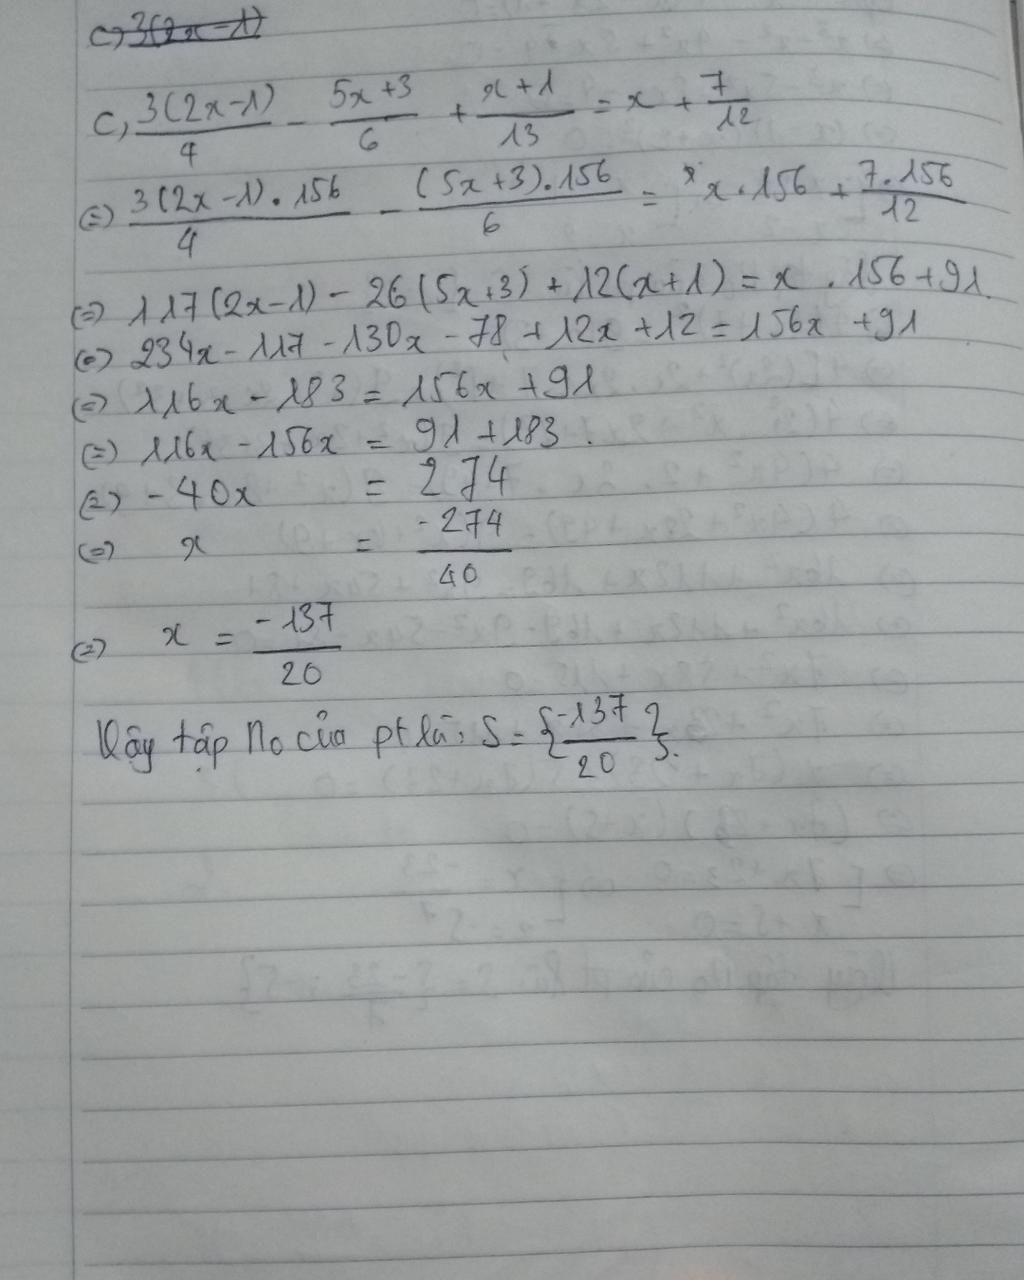 c, 3(2x-1)
c, 3(2x-1)/4 - 5x+3/6 + x+1/13 = x + 7/12
(=) 3(2x-1).156/4 - (5x+3).156/6 = x.156 + 7.156/12
(=) 117(2x-1) - 26(5x+3) + 12(x+1) = x . 156+91.
(=) 234x - 117 - 130x - 78 + 12x + 12 = 156x + 91
(=) 116x - 183 = 156x + 91
(=) 116x - 156x = 91 + 183.
(=) -40x = 274
(=) x = -274/40
(=) x = -137/20
Vậy tập no của pt là: S = {-137/20}.